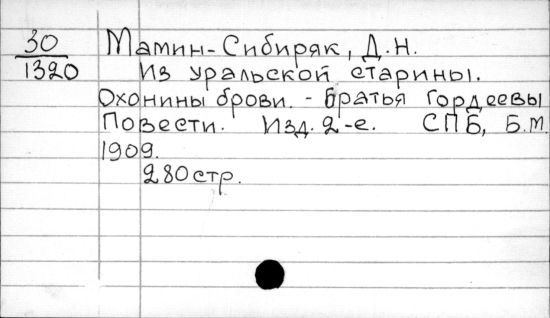 30
1320
Мамин-Сибиряк, Д.Н.
Из уральской старины.
Охонины брови. - Братья Гордеевы
Повести. Изд. 2-е. СПБ, Б.М.
1909.
280 стр.